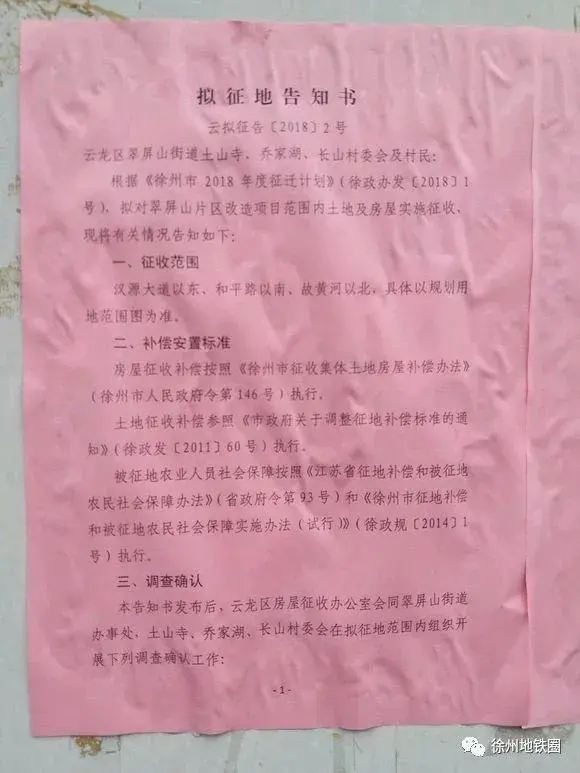 拟征地告知书
云拟征告〔2018〕2号
云龙区翠屏山街道土山寺、乔家湖、长山村委会及村民：
根据《徐州市2018年度征迁计划》（徐政办发〔2018〕1
号），拟对翠屏山片区改造项目范围内土地及房屋实施征收，
现将有关情况告知如下：
一、征收范围
汉源大道以东、和平路以南、故黄河以北，具体以规划用
地范围图为准。
二、补偿安置标准
房屋征收补偿按照《徐州市征收集体土地房屋补偿办法》
（徐州市人民政府令第146号）执行。
土地征收补偿参照《市政府关于调整征地补偿标准的通
知》（徐政发〔2011〕60号）执行。
被征地农业人员社会保障按照《江苏省征地补偿和被征地
农民社会保障办法》（省政府令第93号）和《徐州市征地补偿
和被征地农民社会保障实施办法（试行）》（徐政规〔2014〕1
号）执行。
三、调查确认
本告知书发布后，云龙区房屋征收办公室会同翠屏山街道
办事处，土山寺、乔家湖、长山村委会在拟征地范围内组织开
展下列调查确认工作：
-1-
徐州地铁圈